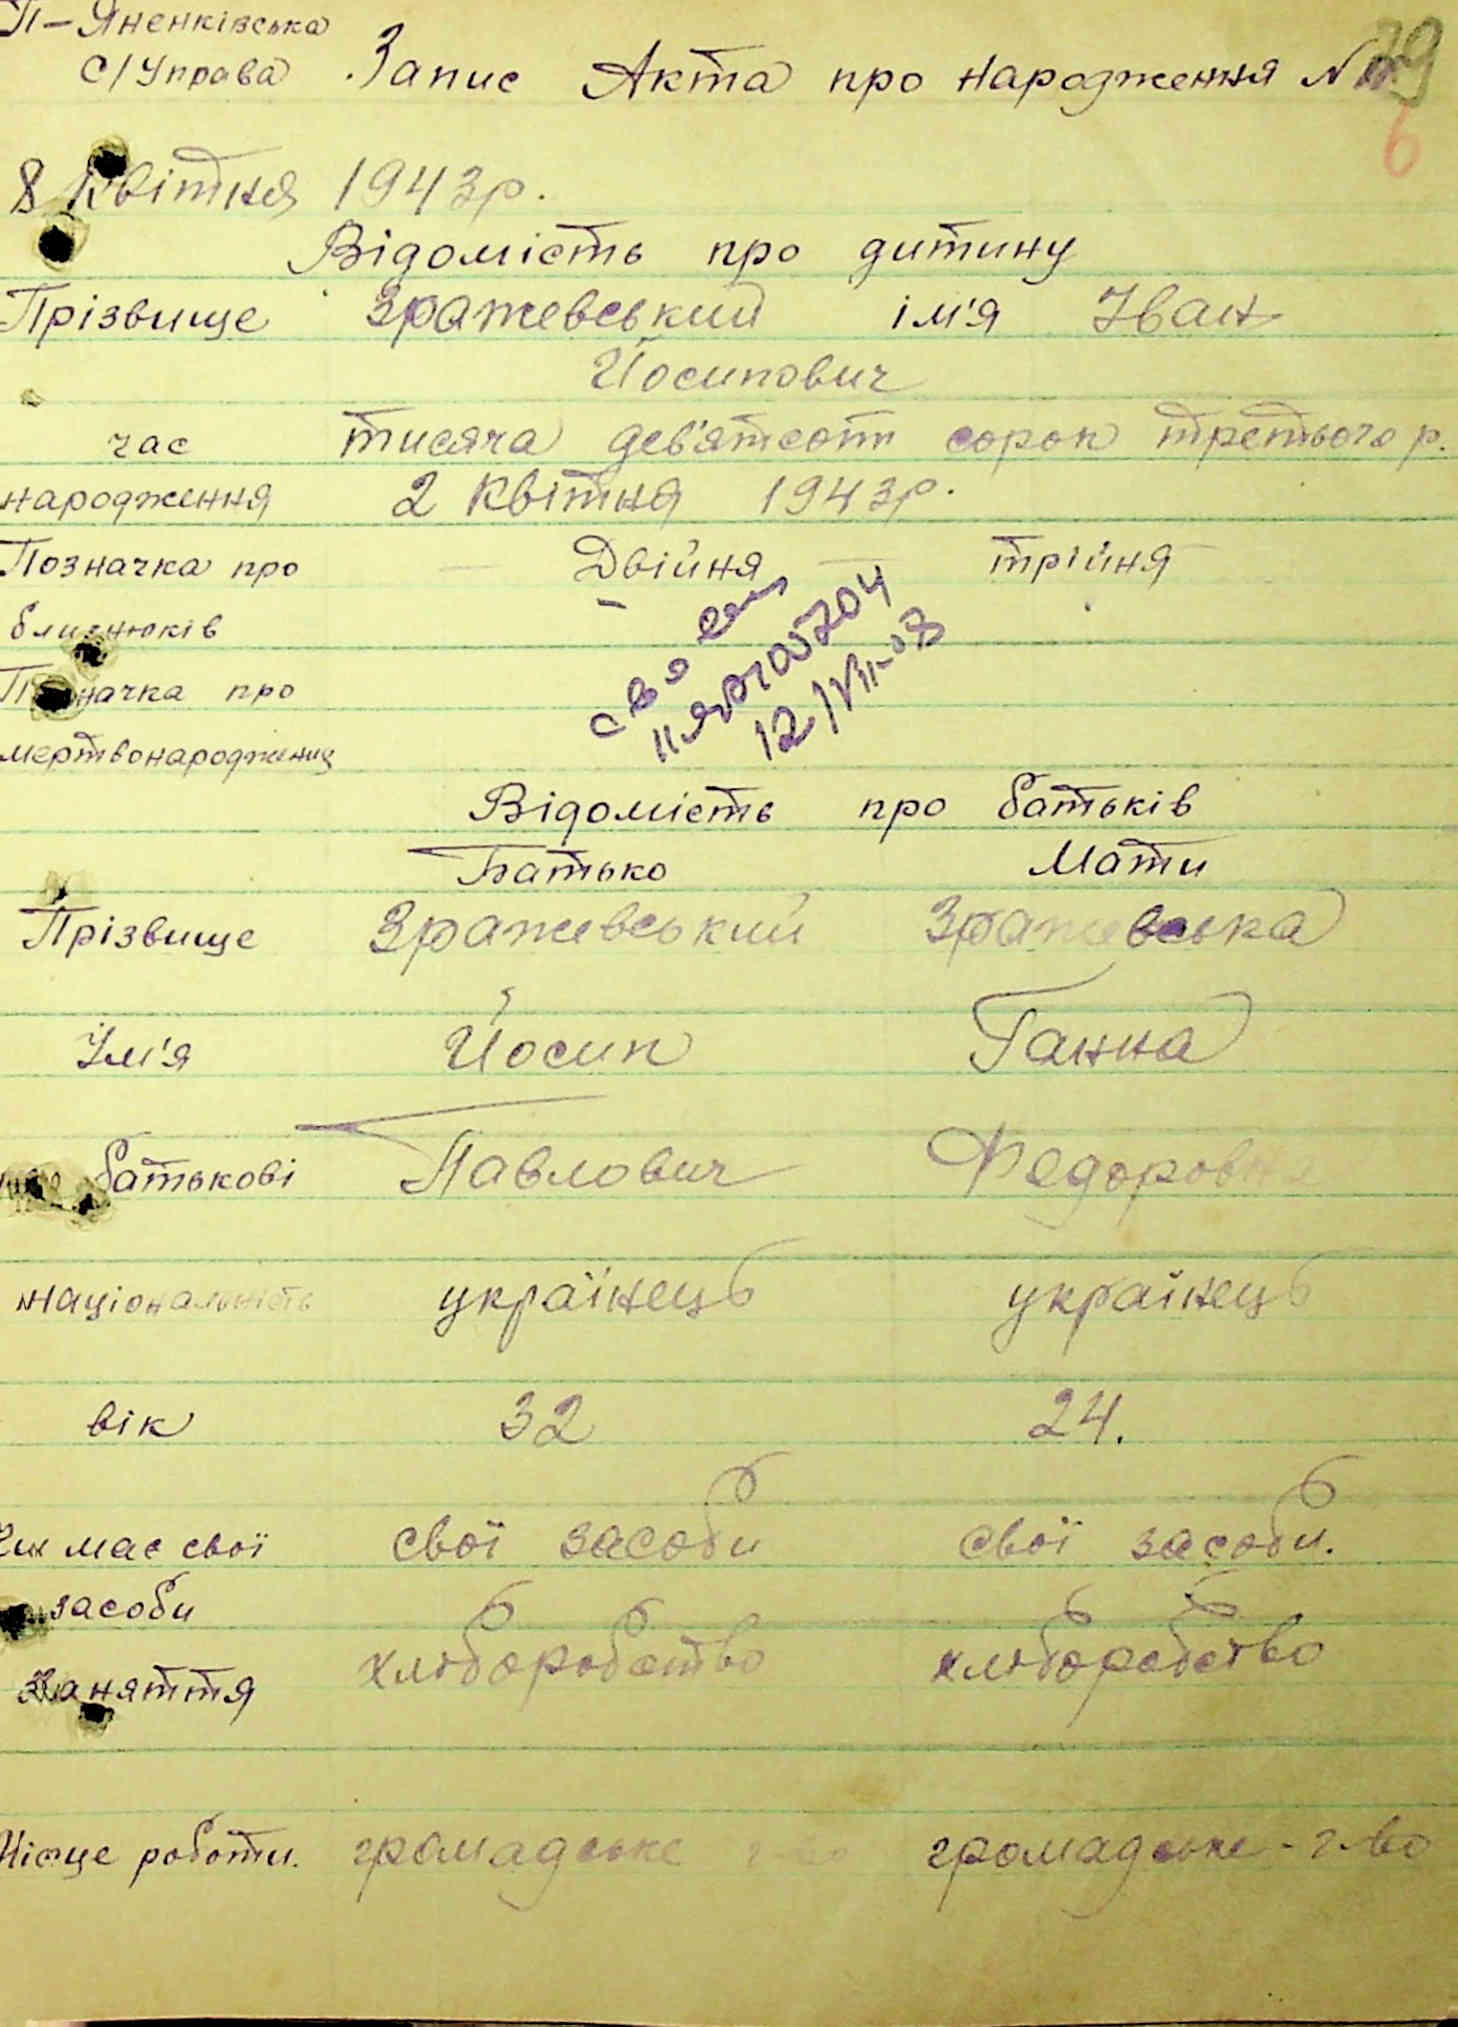 П-Яненківська
С/Управа Запис Акта про народження №
6
8 Квітня 1943р.
Відомість про дитину
Прізвище Зражевський ім'я Іван
Йосипович
час тисяча дев'ятсот сорок третього р.
народження 2 Квітня 1943р.
Позначка про — Двійня — трійня
близнюків
Позначка про
мертвонароджених
12/VII-
Відомість про батьків
Батько Мати
Прізвище Зражевський Зражевська
Ім'я Йосип Ганна
батькові Павлович Федоровна
Національність українець українець
вік 32 24.
Чи має свої свої засоби свої засоби.
засоби
Заняття хліборобство хліборобство
Місце роботи. громадське громадське - г-во